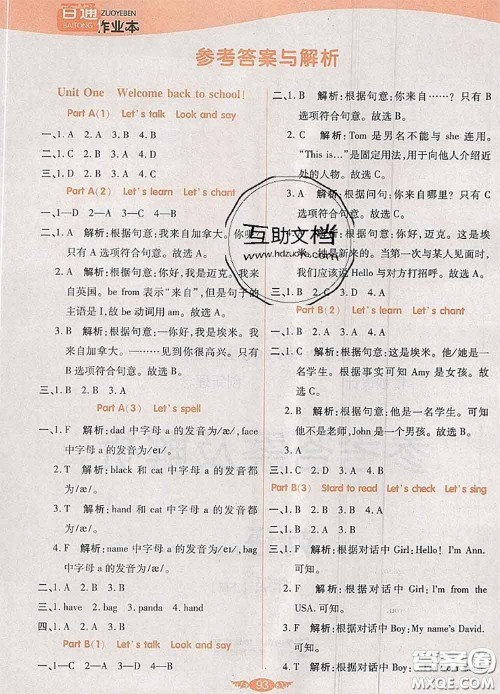 百通
BAITONG
ZUOYEBEN
作业本
参考答案与解析
Unit One Welcome back to school!
Part A(1) Let's talk Look and say
一、1. A 2. A 3. B 4. D
Part A(2) Let's learn Let's chant
一、1—D 2—A 3—B 4—C
二、1. A 解析:根据句意:我来自加拿大。你呢?
只有 A 选项符合句意。故选 A。
2. A 解析:根据句意:你好,我是迈克。我来
自英国。be from 表示“来自”,但是句子的
主语是 I,故 be 动词用 am。故选 A。
3. B 解析:根据句意:—你好,我是埃米。我
来自加拿大。—见到你很高兴。只有 B
选项符合句意。故选 B。
三、1. A 2. B 3. A
Part A(3) Let's spell
一、1. F 解析:dad 中字母 a 的发音为/æ/,face
中字母 a 的发音为/eɪ/。
2. T 解析:black 和 cat 中字母 a 的发音都
为/æ/。
3. T 解析:hand 和 cat 中字母 a 的发音都
为/æ/。
4. F 解析:name 中字母 a 的发音为/eɪ/,bag
中字母 a 的发音为/æ/。
二、1. A 2. B 3. B 4. B
三、1. have 2. bag 3. panda 4. hand
四、1. B 2. D 3. C 4. A
Part B(1) Let's talk Look and say
一、1. A 2. B 3. A 4. B
二、1. B 解析:根据句意:你来自……?只有 B
选项符合句意。故选 B。
2. C 解析:Tom 是男名不能与 she 连用。
“This is…”是固定用法,用于向他人介绍近
处的人物。故选 C。
3. A 解析:根据问句:你来自哪里?只有 C
选项符合句意。故选 C。
米。他是新来的。当第一次与某人见面时,
我们应该说 Hello 与对方打招呼。故选 A。
三、1. B 2. C 3. D 4. A
Part B(2) Let's learn Let's chant
一、1. B 2. B 3. A
二、1. B 解析:根据句意:这是埃米。他/她是一
名学生。根据事实可知 Amy 是女孩。故
选 B。
2. B 解析:根据句意:他是一名学生。可知
他不是老师,John 是一个男名。故选 B。
三、1. C 2. A 3. B
Part B(3) Stard to read Let's check Let's sing
一、1. B 2. A 3. B 4. A
二、1. F 解析:根据对话中 Girl:Hello! I'm Ann.
可知。
2. F 解析:根据对话中 Girl:I'm from the
USA. 可知。
3. T 解析:根据对话中 Boy:My name's David.
可知。
4. T 解析:根据对话中 Boy:I'm from
可知。
互助文档
www.hdzuoye.com
93
答案圈